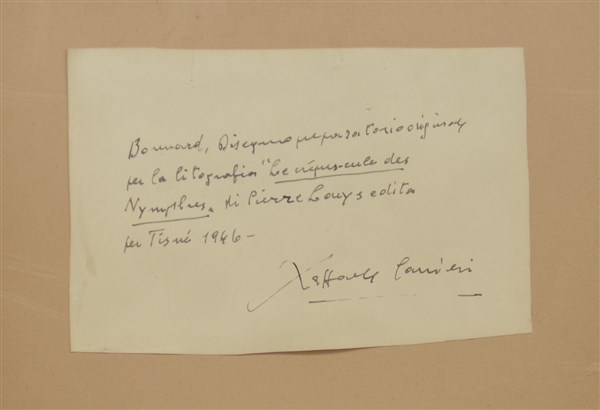 Bonnard, Disegno preparatorio originale
per la litografia "Le crépuscule des
Nymphes. di Pierre Louys edita
per Tisné 1946 -
Raffaele Carrieri